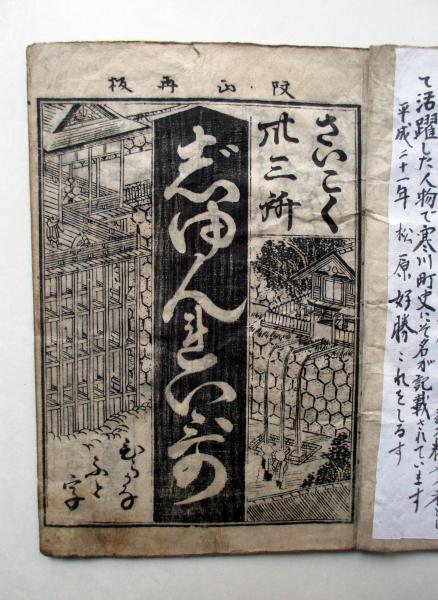 再板
さいこく
卅三所
じゆんれい哥
ひらかな
ふと
字
て活躍した人物で寒川町史にその名が記載されています
平成二十一年 松原好勝これをしるす